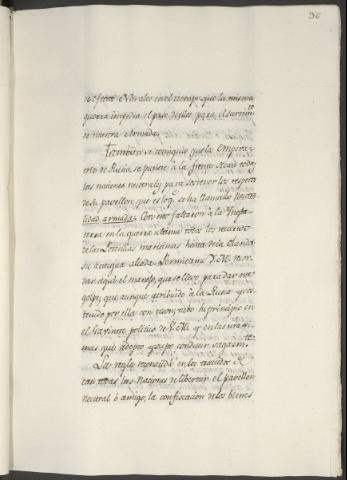 30
de efectos Navales en el tiempo que la misma
quería impedir el paso de ellos para el surtim.to
de nuestra Armada.
También se consiguió que la Empera-
triz de Rusia se pusiese à la frente de casi todas
las naciones neutrales para sostener los respetos
de su pavellon, que es lo q.e se ha llamado Neutra-
lidad armada. Con esto faltaron à la Ingla-
terra en la guerra ultima todos los recursos
de las Potencias maritimas hasta de la Olanda
su antigua aliada. Permitame V. M. recor-
dar aqui el manejo que se llevó para dar este
golpe, que aunque atribuido à la Rusia y sos-
tenido por ella con teson, tubo su principio en
el Gavinete politico de V. M. y en las maxi-
mas que adoptó y supo conducir sagazm.te
La regla reconocida en los tratados de
casi todas las Naciones de libertar el pavellon
neutral ò amigo, la confiscacion de los bienes